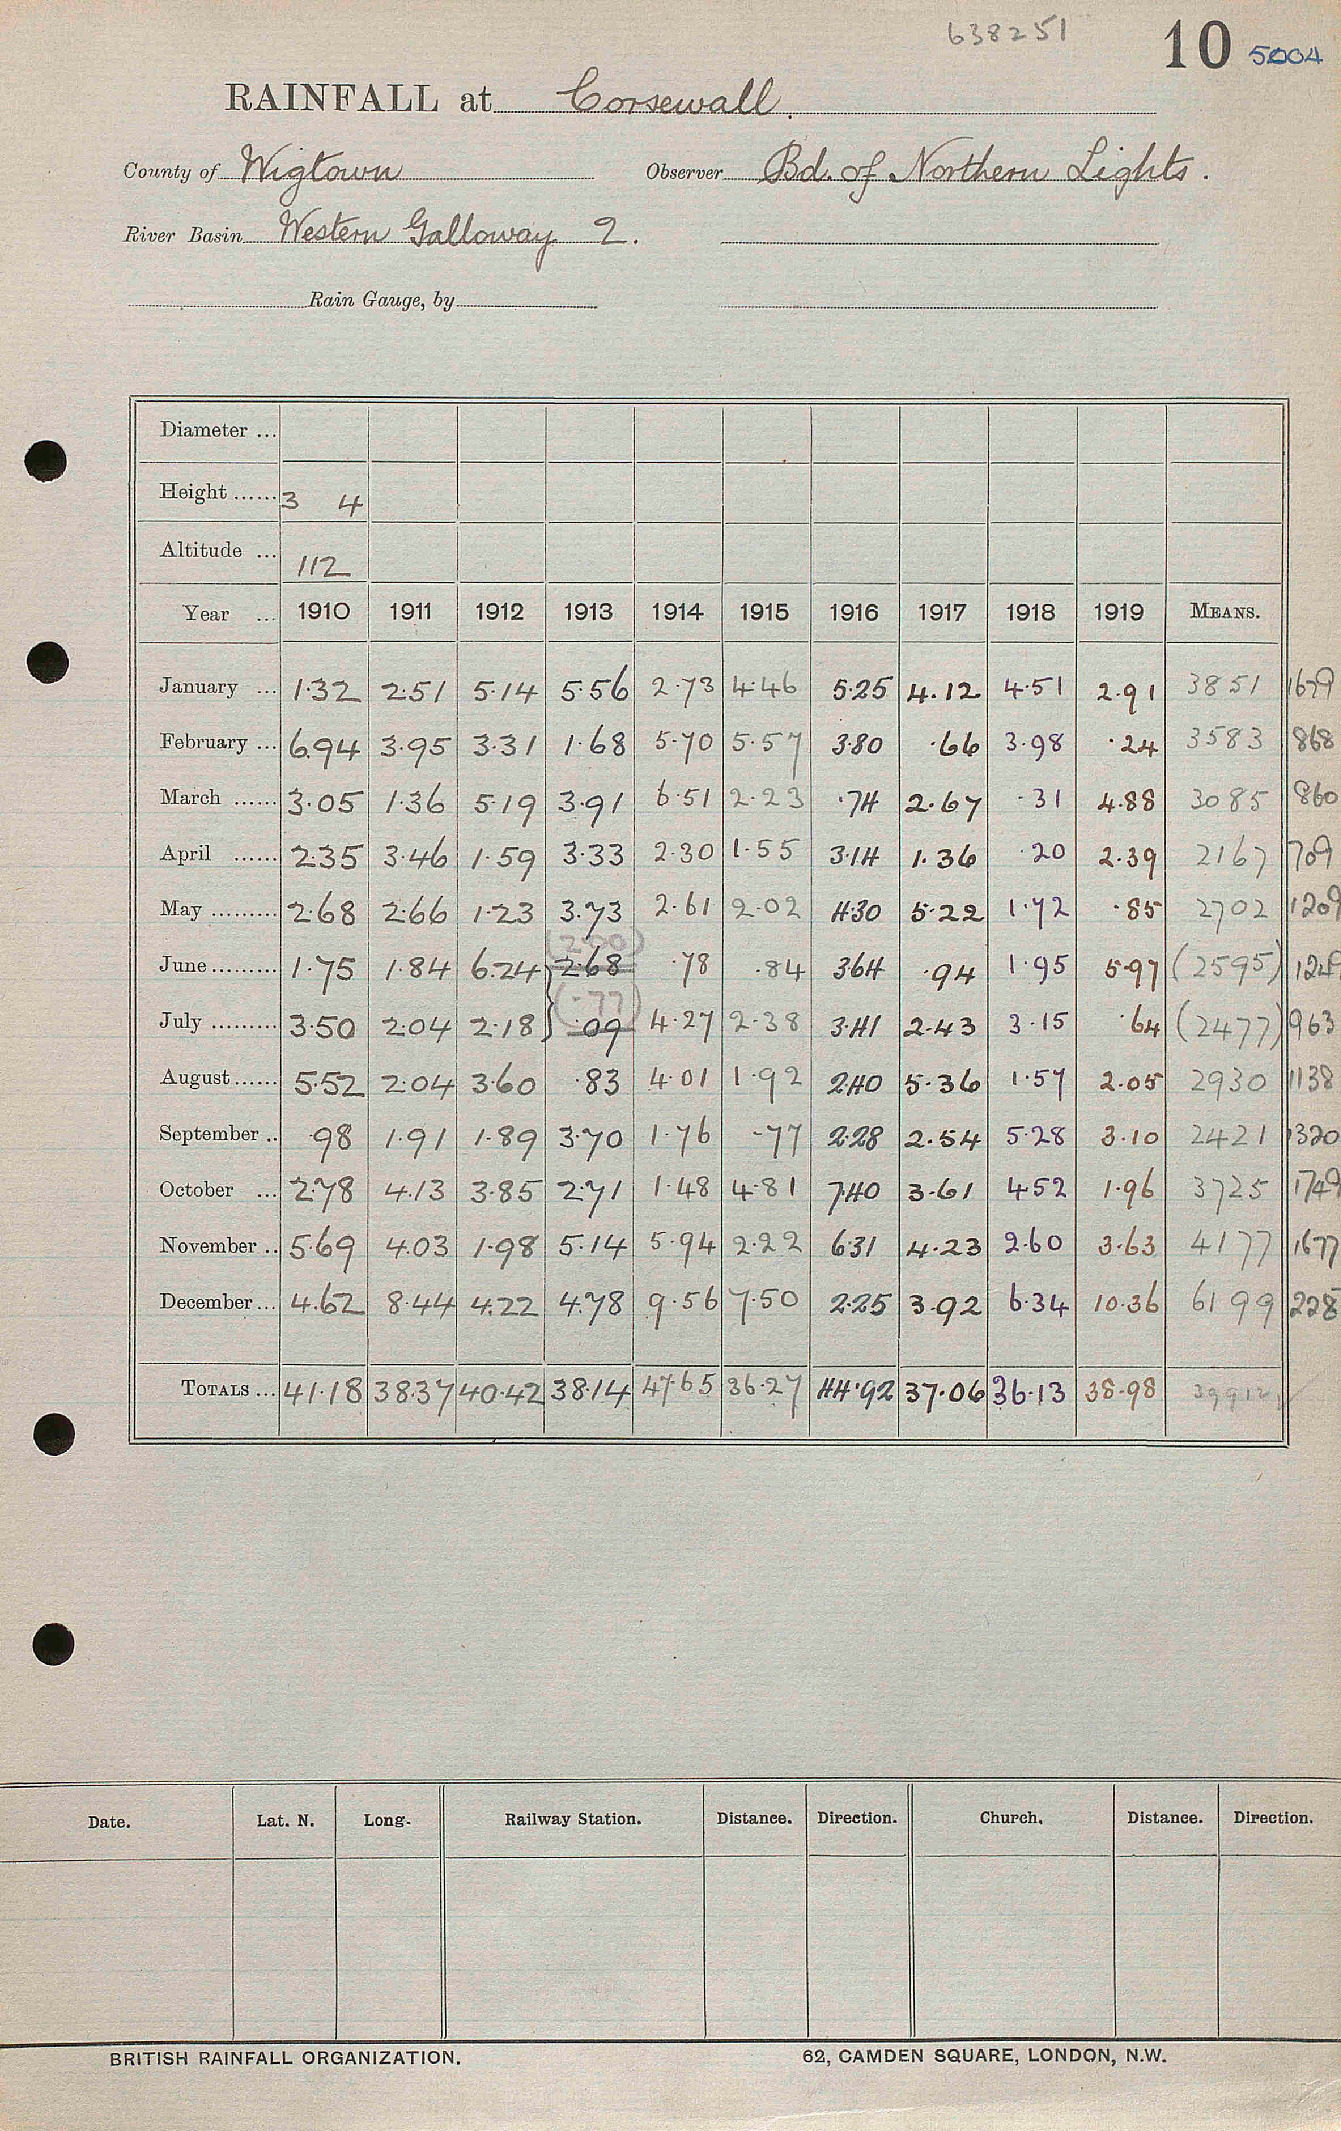 638251
10 5004
RAINFALL at Corsewall.
County of Wigtown Observer Bd. of Northern Lights.
River Basin Western Galloway 2.
Rain Gauge, by
Diameter ...
Height ...... 3 4
Altitude ... 112
Year ... 1910 1911 1912 1913 1914 1915 1916 1917 1918 1919 MEANS.
January ... 1.32 2.51 5.14 5.56 2.73 4.46 5.25 4.12 4.51 2.91 3851 1679
February ... 6.94 3.95 3.31 1.68 5.70 5.57 3.80 .66 3.98 .24 3583 868
March ...... 3.05 1.36 5.19 3.91 6.51 2.23 .74 2.67 .31 4.88 3085 860
April ...... 2.35 3.46 1.59 3.33 2.30 1.55 3.14 1.36 .20 2.39 2167 709
May ......... 2.68 2.66 1.23 3.73 2.61 2.02 4.30 5.22 1.72 .85 2702 1209
(2.00)
June ......... 1.75 1.84 6.24 2.68 .78 .84 3.64 .94 1.95 5.97 (2595)
(.77)
July ......... 3.50 2.04 2.18 .09 4.27 2.38 3.41 2.43 3.15 .64 (2477) 963
August ...... 5.52 2.04 3.60 .83 4.01 1.92 2.40 5.36 1.57 2.05 2930 1138
September .. .98 1.91 1.89 3.70 1.76 .77 2.28 2.54 5.28 3.10 2421 1320
October ... 2.78 4.13 3.85 2.71 1.48 4.81 7.40 3.61 4.52 1.96 3725 1749
November .. 5.69 4.03 1.98 5.14 5.94 2.22 6.31 4.23 2.60 3.63 4177 1677
December ... 4.62 8.44 4.22 4.78 9.56 7.50 2.25 3.92 6.34 10.36 6199 228
TOTALS ... 41.18 38.37 40.42 38.14 47.65 36.27 44.92 37.06 36.13 38.98 39912
Date. Lat. N. Long. Railway Station. Distance. Direction. Church. Distance. Direction.
BRITISH RAINFALL ORGANIZATION. 62, CAMDEN SQUARE, LONDON, N.W.